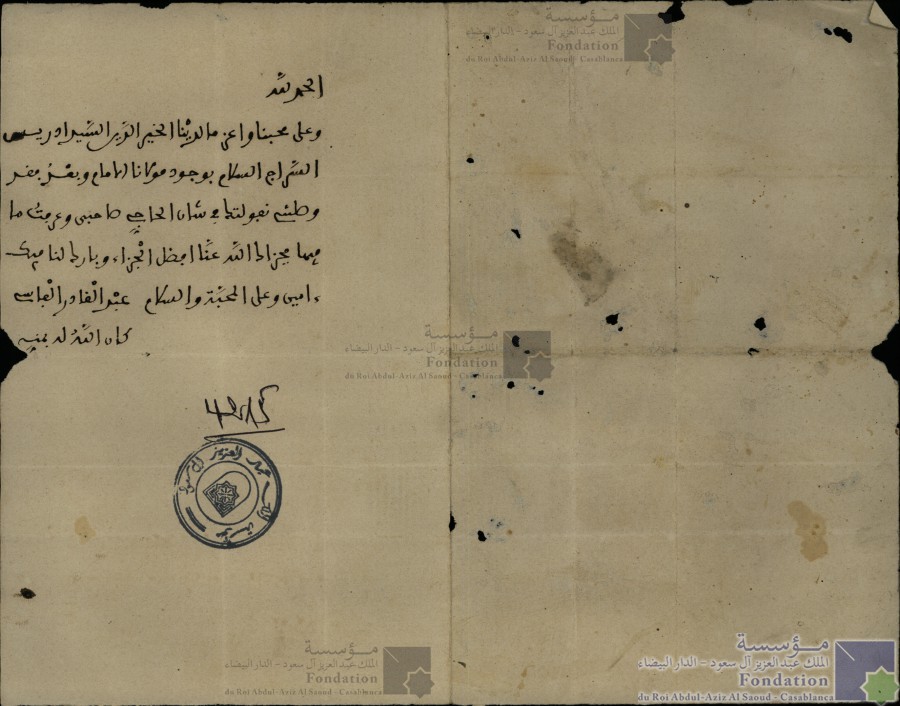 الحمد لله
وعلى محبنا واعز ما لدينا الخير الدين السيد ادريس
السراج السلام بوجود مولانا الامام وبعد
شان الحاج صاحبي وعرفت ما
فيها فجزاك الله عنا افضل الجزاء وبارك لنا فيك
ءامين وعلى المحبة والسلام عبد القادر الفاسي
كان الله له بمنه
مؤسسة
الملك عبد العزيز آل سعود - الدار البيضاء
Fondation
du Roi Abdul-Aziz Al Saoud - Casablanca
مؤسسة
الملك عبد العزيز آل سعود - الدار البيضاء
Fondation
du Roi Abdul-Aziz Al Saoud - Casablanca
عبد العزيز آل سعود
مؤسسة الملك
مؤسسة
الملك عبد العزيز آل سعود - الدار البيضاء
Fondation
du Roi Abdul-Aziz Al Saoud - Casablanca
مؤسسة
الملك عبد العزيز آل سعود - الدار البيضاء
Fondation
du Roi Abdul-Aziz Al Saoud - Casablanca